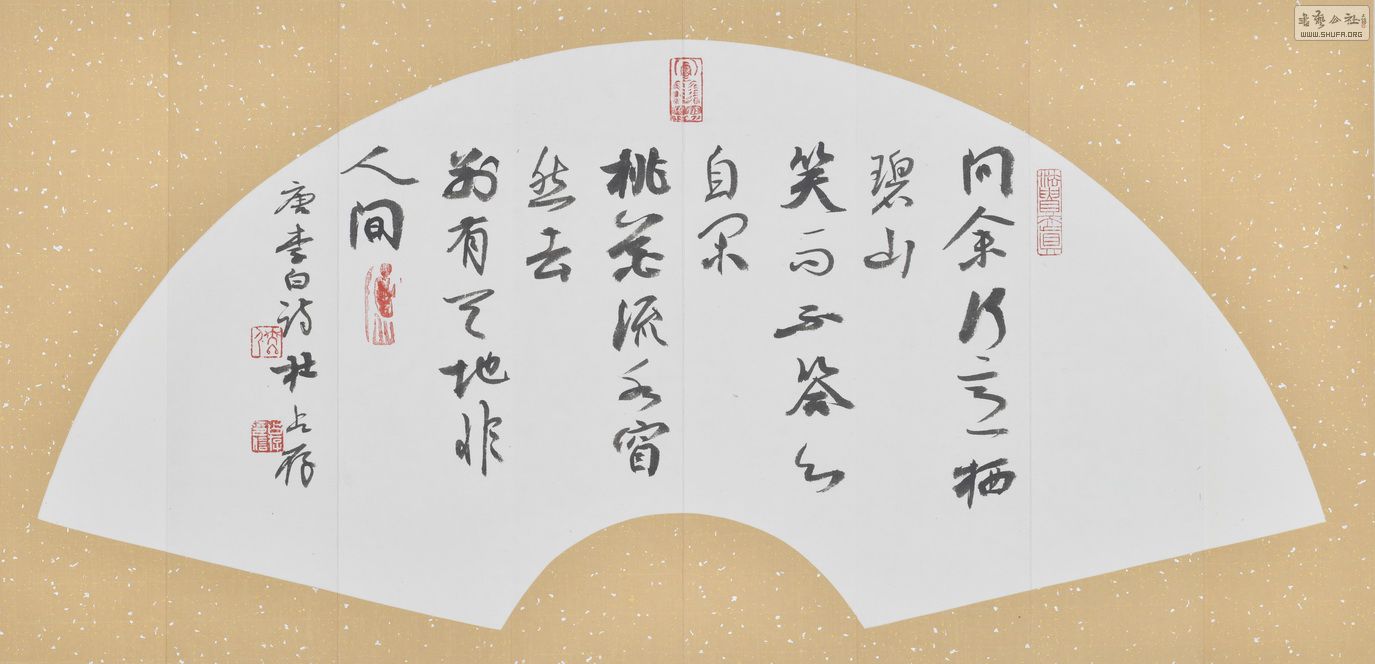 问余何意栖
碧山
笑而不答心
自闲
桃花流水窅
然去
别有天地非
人间
唐李白诗杜占存
书艺公社
WWW.SHUFA.ORG